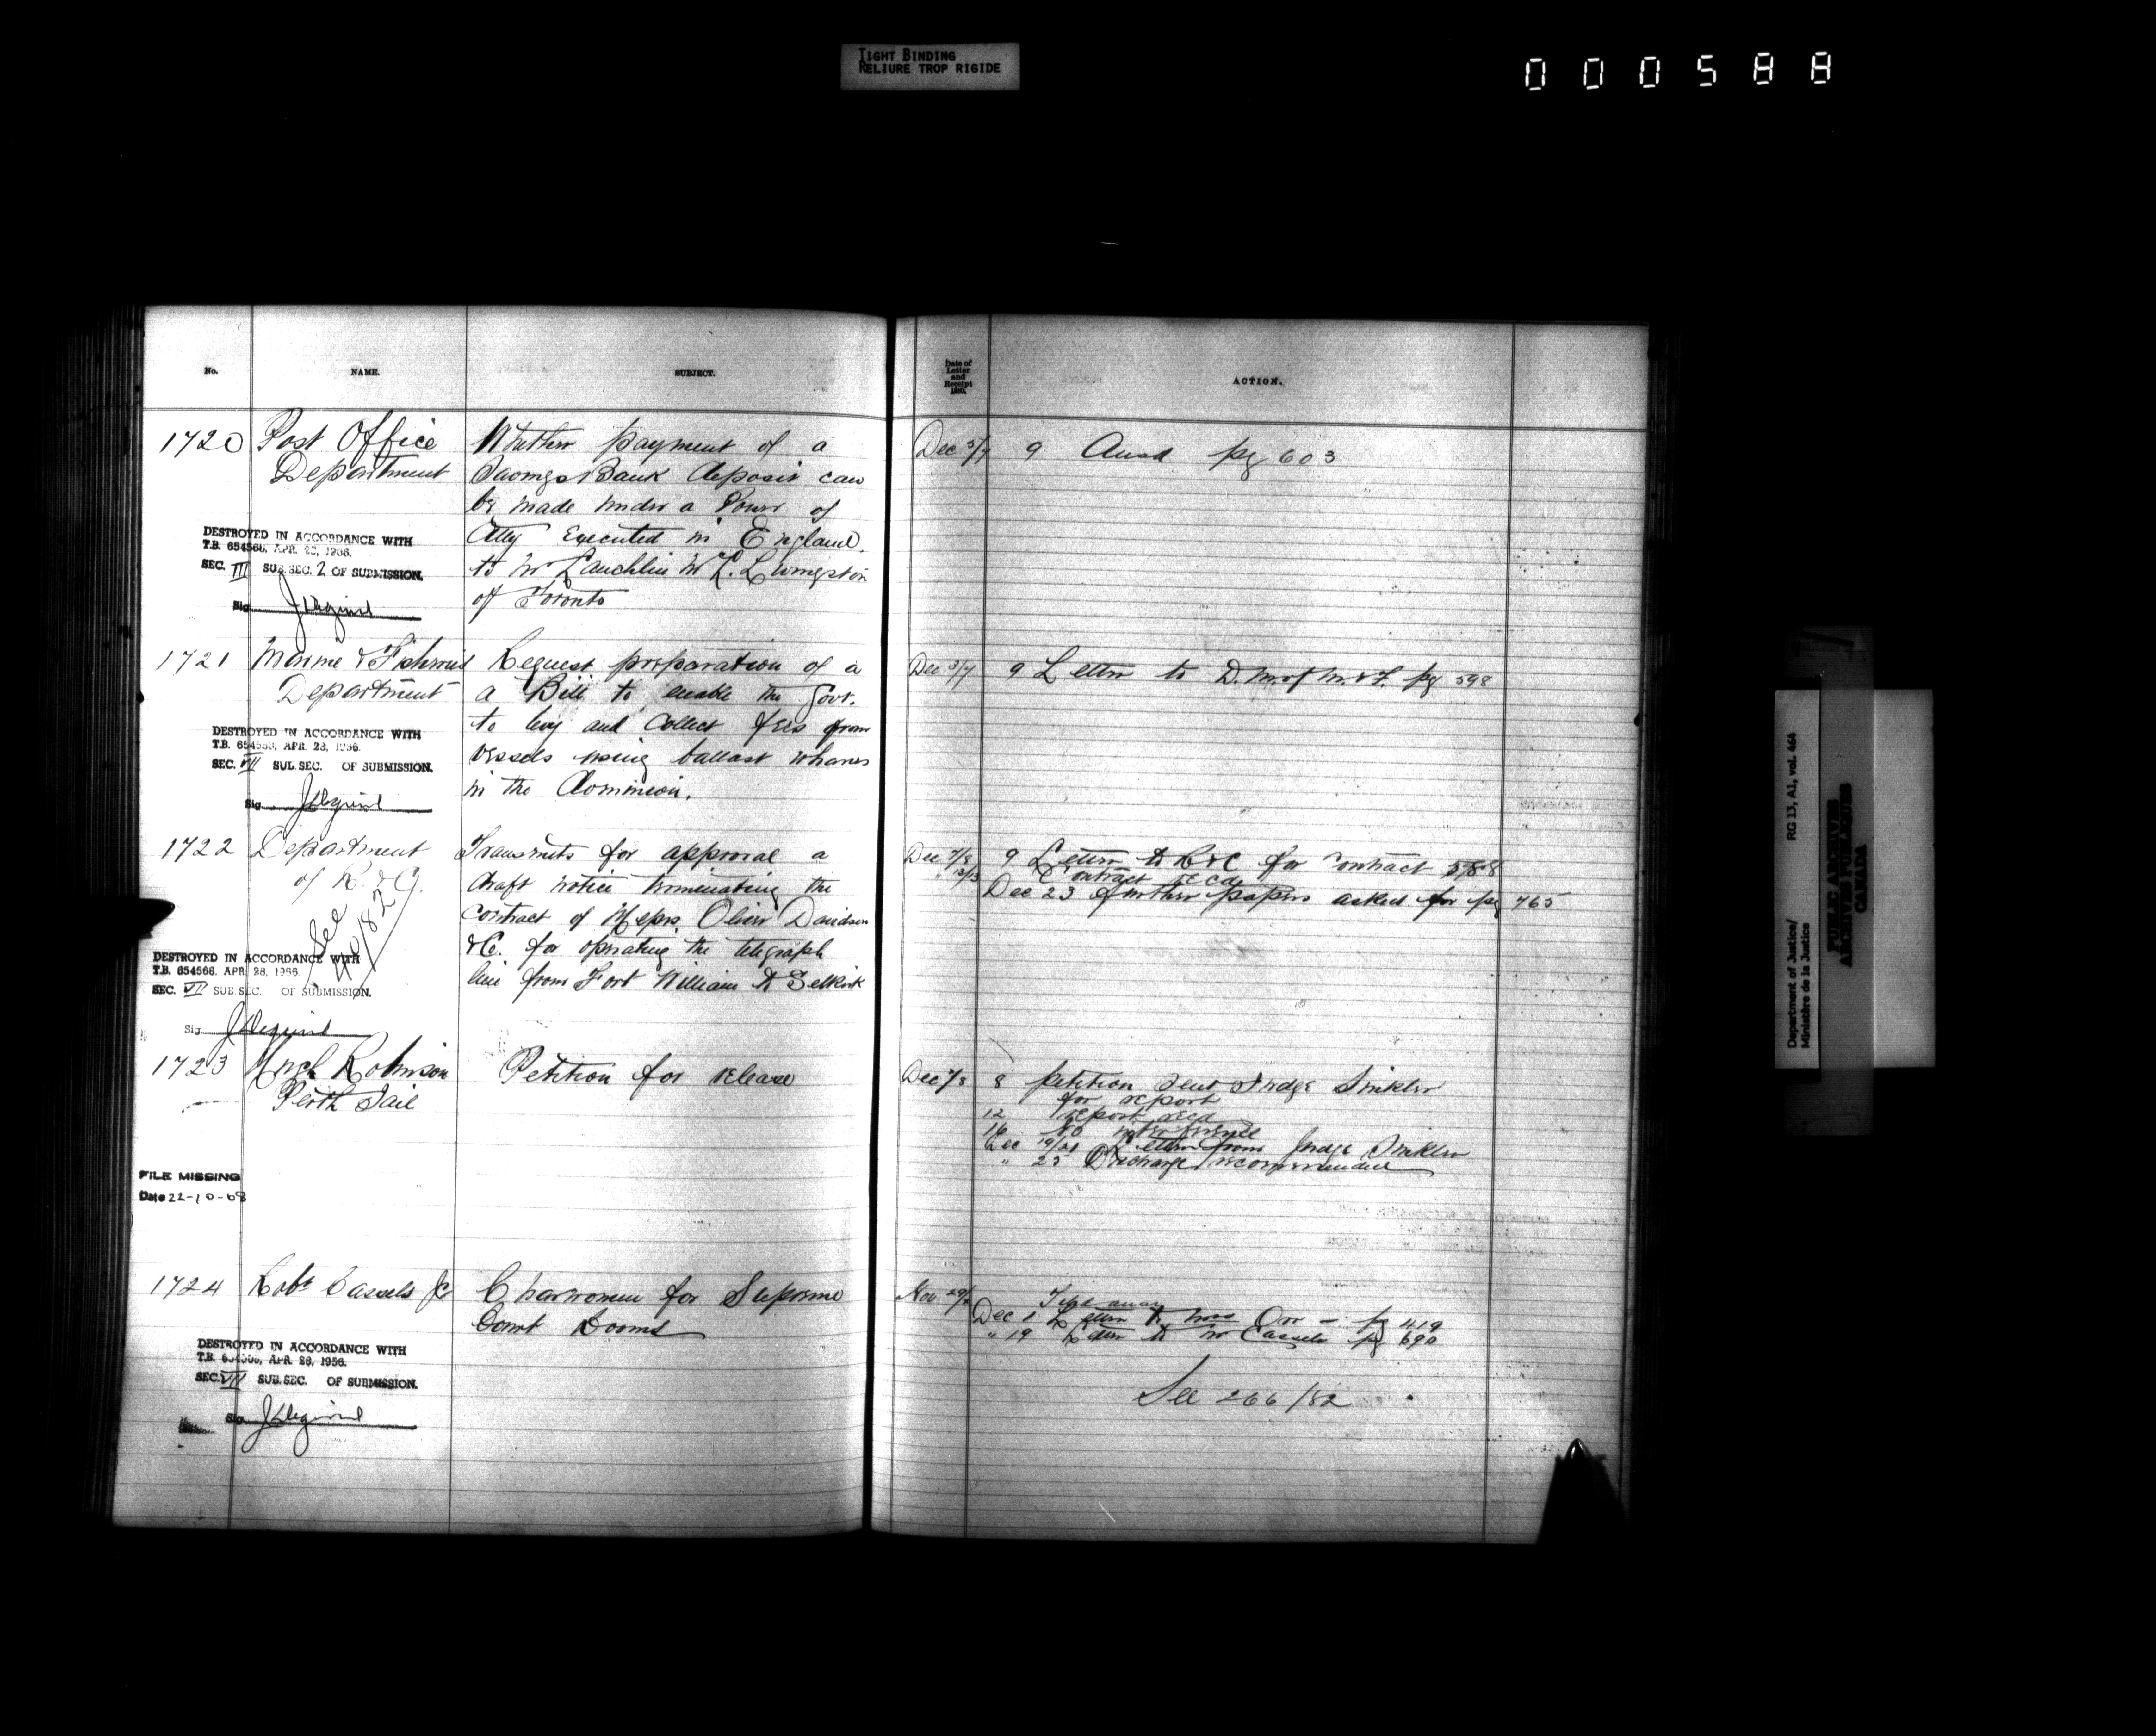 TIGHT BINDING
RELIURE TROP RIGIDE
000588
No.
NAME.
SUBJECT.
Date of
Letter
and
Receipt
1880.
ACTION.
1720 Post Office
Department
Whether payment of a
Savings Bank deposit can
be made under a Power of
Atty executed in England
to Mr Lauchlin McL. Livingston
of Toronto
Dec 3/7 9 Ansd pg 603
DESTROYED IN ACCORDANCE WITH
T.B. 654566, APR. 28, 1956.
SEC. III SUB.SEC. 2 OF SUBMISSION.
Sig
1721 Marine & Fisheries
Department
Request preparation of a
a Bill to enable the Govt.
to levy and collect fees from
vessels using ballast wharves
in the Dominion.
Dec 3/7 9 Letter to D.M. of M. & F. pg 598
DESTROYED IN ACCORDANCE WITH
T.B. 654566, APR. 28, 1956.
SEC. VII SUB.SEC. OF SUBMISSION.
Sig
1722 Department
of R. & C.
See
/82
Transmits for approval a
draft notice terminating the
contract of Messrs. Oliver Davidson
& C. for operating the telegraph
line from Fort William to Selkirk
Dec 7/8 9 Letter to R & C for contract 588
" 13/13 Contract recd
Dec 23 further papers asked for pg 765
DESTROYED IN ACCORDANCE WITH
T.B. 654566, APR. 28, 1956.
SEC. VII SUB.SEC. OF SUBMISSION.
Sig
1723 Hugh Robinson
Perth Jail
Petition for release
Dec 7/8 8 petition sent Judge Sinkler
for report
12 report recd
16 to interfere
Dec 19/21 Letter from Judge Sinkler
" 25 Discharge recommended
FILE MISSING
Date 22-10-68
1724 Robt Cassels Jr
Charwomen for Supreme
Court Rooms
Nov 29/ File away
Dec 1 Letter to Mrs Orr - pg 419
" 19 Letter to Mr Cassels pg 690
See 266/82
DESTROYED IN ACCORDANCE WITH
T.B. 654566, APR. 28, 1956.
SEC. VII SUB.SEC. OF SUBMISSION.
Sig
Department of Justice/
Ministère de la Justice
RG 13, A1, vol. 464
PUBLIC ARCHIVES
ARCHIVES PUBLIQUES
CANADA